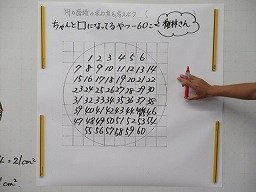 円の面積の求め方を考えよう
ちゃんと□になってるやつ…60こ
梅林さん
1 2 3 4 5 6
7 8 9 10 11 12 13 14
15 16 17 18 19 20 21 22
23 24 25 26 27 28 29 30
31 32 33 34 35 36 37 38
39 40 41 42 43 44 45 46
47 48 49 50 51 52 53 54
55 56 57 58 59 60